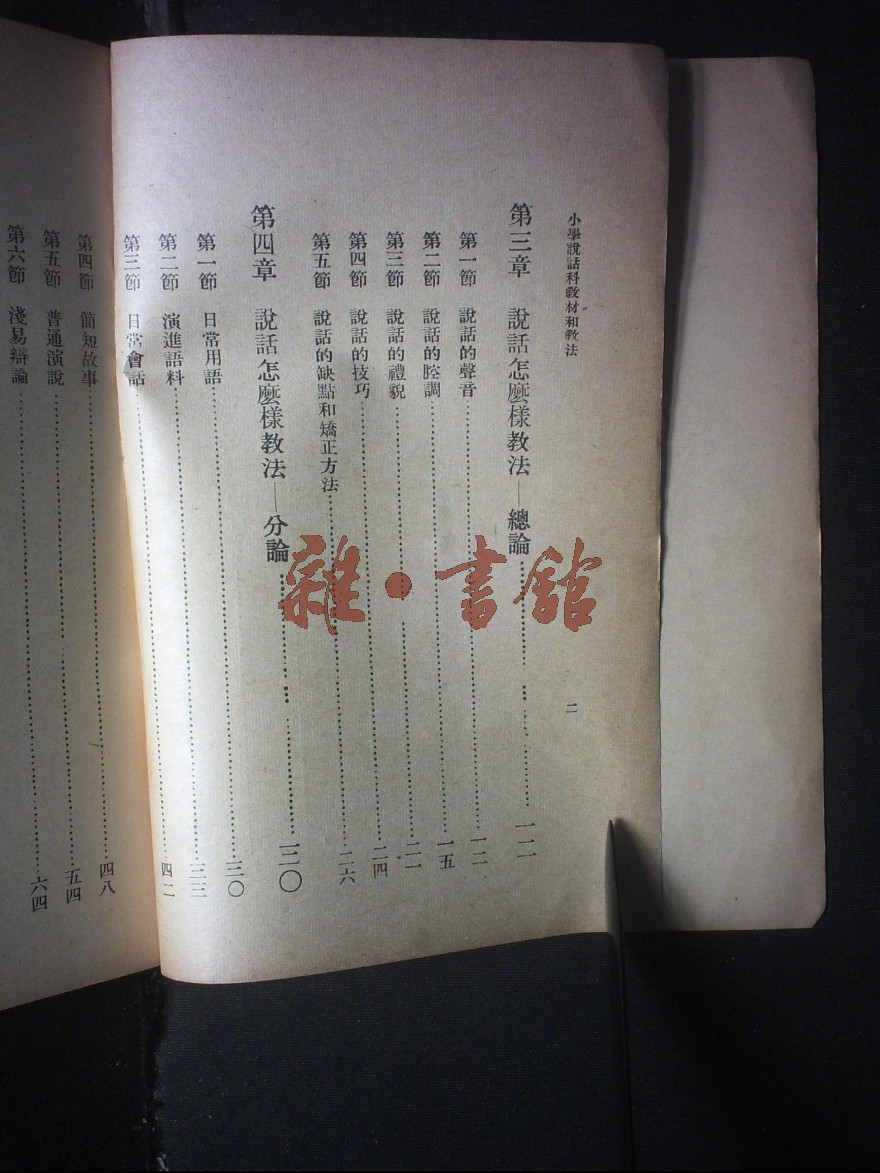 小學說話科教材和教法
二
第三章 說話怎麼樣教法——總論……一二
第一節 說話的聲音……一二
第二節 說話的腔調……一五
第三節 說話的禮貌……二一
第四節 說話的技巧……二四
第五節 說話的缺點和矯正方法……二六
第四章 說話怎麼樣教法——分論……三〇
第一節 日常用語……三〇
第二節 演進語料……三三
第三節 日常會話……四二
第四節 簡短故事……四八
第五節 普通演說……五四
第六節 淺易辯論……六四
雜·書館